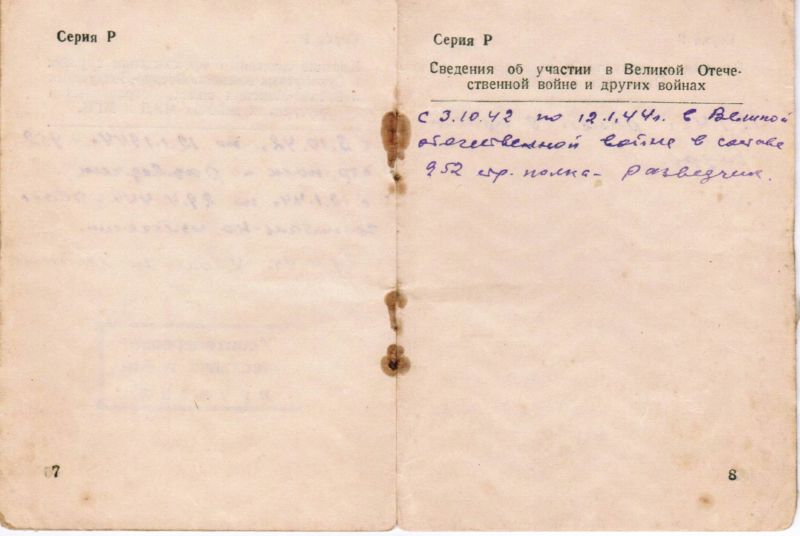 Серия Р
7
Серия Р
Сведения об участии в Великой Отече-
ственной войне и других войнах
с 3.10.42 по 12.1.44г. в Великой
отечественной войне в составе
952 стр. полка - разведчик.
8